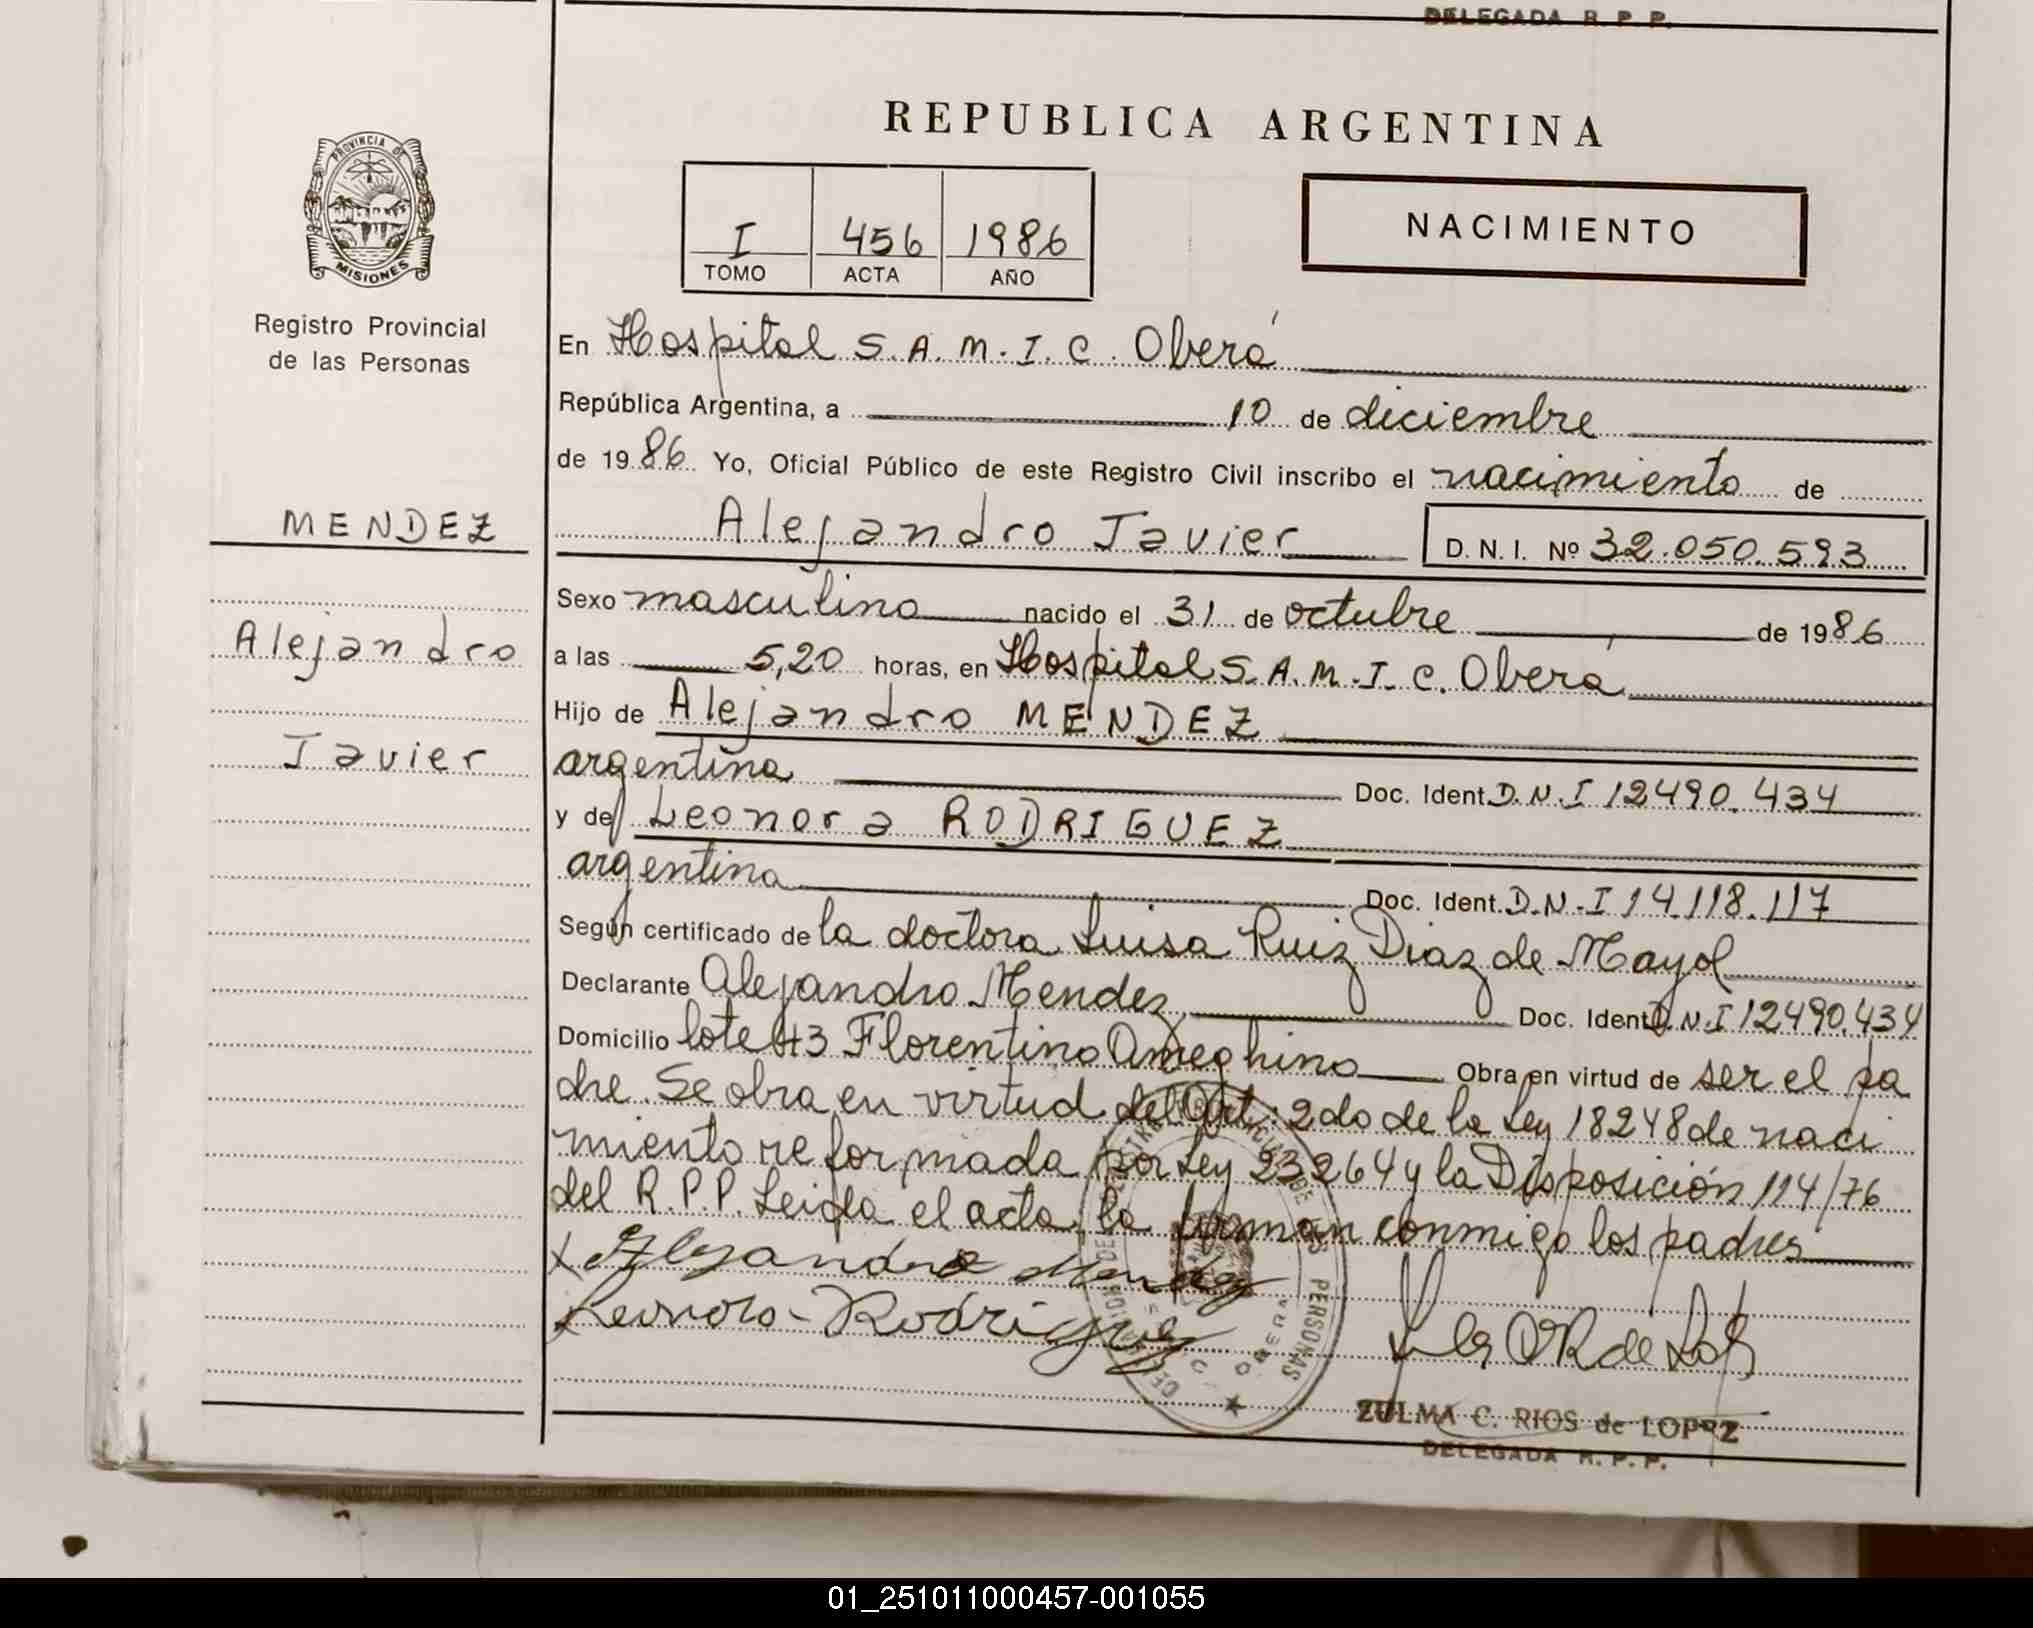 DELEGADA R. P. P.
REPUBLICA ARGENTINA
PROVINCIA DE
MISIONES
Registro Provincial
de las Personas
I 456 1986
TOMO ACTA AÑO
NACIMIENTO
En Hospital S.A.M.I.C. Oberá
República Argentina, a 10 de diciembre
de 1986 Yo, Oficial Público de este Registro Civil inscribo el nacimiento de
MENDEZ
Alejandro Javier D.N.I. Nº 32.050.593
Sexo masculino nacido el 31 de octubre de 1986
Alejandro
a las 5,20 horas, en Hospital S.A.M.I.C. Oberá
Hijo de Alejandro MENDEZ
Javier
argentina Doc. Ident. D.N.I 12490.434
y de Leonora RODRIGUEZ
argentina Doc. Ident. D.N.I 14.118.117
Según certificado de la doctora Luisa Ruiz Diaz de Mayol
Declarante Alejandro Mendez Doc. Ident. D.N.I 12490.434
Domicilio lote 43 Florentino Ameghino Obra en virtud de ser el pa
dre. Se obra en virtud del Art: 2do de la Ley 18248 de naci
miento reformada por Ley 23264 y la Disposición 114/76
del R.P.P. Leida el acta, la firman conmigo los padres
x Alejandro Mendez
x Leonora - Rodriguez
PERSONAS
ZULMA C. RIOS de LOPEZ
DELEGADA R. P. P.
01_251011000457-001055